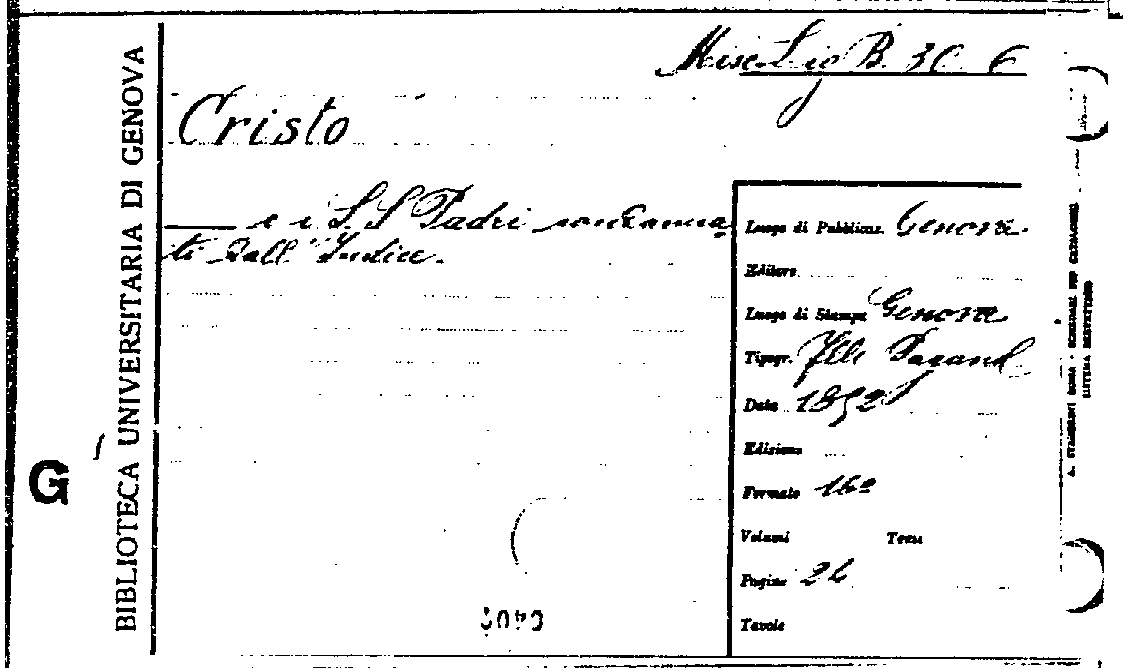 Misc. Lig B. 30 6
Cristo
—— e i S.S Padri condanna
ti dall'Indice.
Luogo di Pubblicaz. Genova.
Editore
Luogo di Stampa Genova
Tipogr. Flli Pagano
Data 1852
Edizione
Formato 16º
Volumi Tomi
Pagine 26
Tavole
BIBLIOTECA UNIVERSITARIA DI GENOVA
G